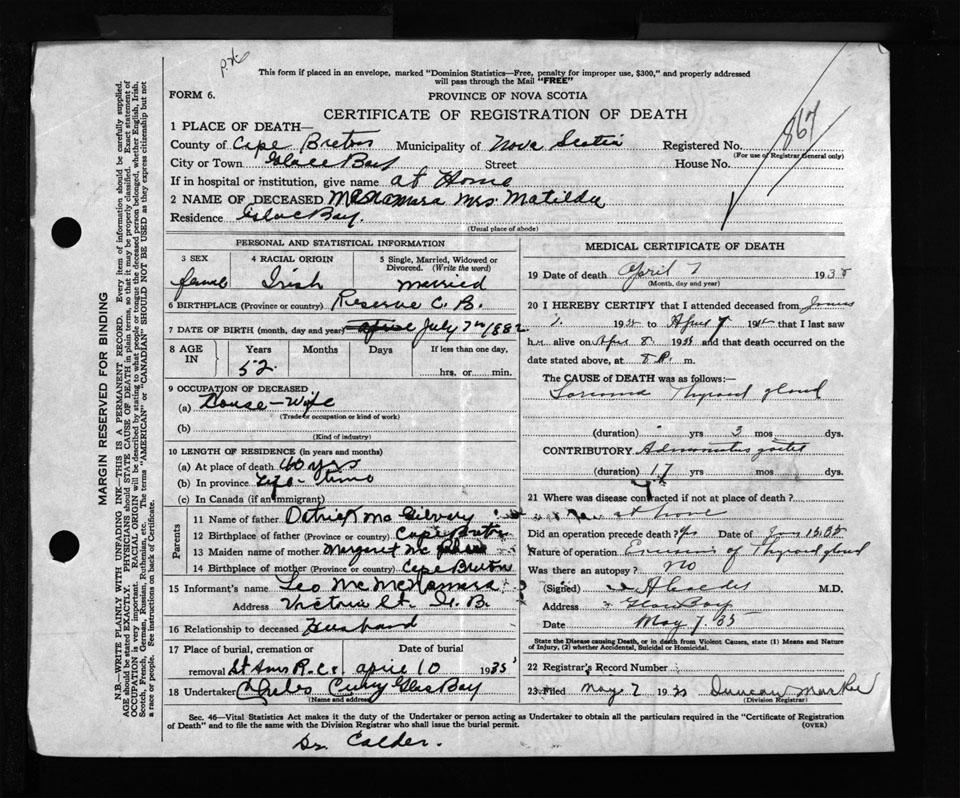 This form if placed in an envelope, marked "Dominion Statistics—Free, penalty for improper use, $300," and properly addressed
will pass through the Mail "FREE"
FORM 6.
PROVINCE OF NOVA SCOTIA
CERTIFICATE OF REGISTRATION OF DEATH
867
1 PLACE OF DEATH—
County of Cape Breton Municipality of Nova Scotia Registered No.
(For use of Registrar General only)
City or Town Glace Bay Street House No.
If in hospital or institution, give name at Home
2 NAME OF DECEASED McNamara Mrs. Matilda
Residence Glace Bay.
(Usual place of abode)
MARGIN RESERVED FOR BINDING
N.B.—WRITE PLAINLY WITH UNFADING INK—THIS IS A PERMANENT RECORD. Every item of information should be carefully supplied.
AGE should be stated EXACTLY. PHYSICIANS should STATE CAUSE OF DEATH in plain terms, so that it may be properly classified. Exact statement of
OCCUPATION is very important. RACIAL ORIGIN will be described by stating to what people or tongue the deceased person belonged, whether English, Irish,
Scotch, French, German, Russian, Ruthenian, etc. The terms "AMERICAN" or "CANADIAN" SHOULD NOT BE USED as they express citizenship but not
a race or people. See instructions on back of Certificate.
PERSONAL AND STATISTICAL INFORMATION
3 SEX 4 RACIAL ORIGIN 5 Single, Married, Widowed or
Divorced. (Write the word)
Irish married
6 BIRTHPLACE (Province or country) Reserve C. B.
7 DATE OF BIRTH (month, day and year) July 7th 1882
8 AGE IN Years Months Days If less than one day,
52 hrs. or min.
9 OCCUPATION OF DECEASED
(a) House-Wife
(Trade or occupation or kind of work)
(b)
(Kind of industry)
10 LENGTH OF RESIDENCE (in years and months)
(a) At place of death 40 yrs
(b) In province Life-time
(c) In Canada (if an immigrant)
Parents
11 Name of father
12 Birthplace of father (Province or country) Cape Breton
13 Maiden name of mother Margaret Mc
14 Birthplace of mother (Province or country) Cape Breton
15 Informant's name Leo Mc McNamara
Address Victoria St. G. B.
16 Relationship to deceased Husband
17 Place of burial, cremation or Date of burial
removal St Anns R.C. april 10 1935
18 Undertaker Curry Glace Bay
(Name and address)
MEDICAL CERTIFICATE OF DEATH
19 Date of death April 7 1935
(Month, day and year)
20 I HEREBY CERTIFY that I attended deceased from
1935 to April 7 19 that I last saw
h alive on Apr 8. 1935 and that death occurred on the
date stated above, at 8 P. m.
The CAUSE of DEATH was as follows:
Sarcoma Thyroid gland
(duration) yrs 3 mos dys.
CONTRIBUTORY Adenomatous goitre
(duration) 17 yrs mos dys.
21 Where was disease contracted if not at place of death?
at home
Did an operation precede death? yes Date of 15.35
Nature of operation Excision of Thyroid gland
Was there an autopsy? NO
(Signed) A Calder M.D.
Address Glace Bay
Date May 7. 35
State the Disease causing Death, or in death from Violent Causes, state (1) Means and Nature
of Injury, (2) whether Accidental, Suicidal or Homicidal.
22 Registrar's Record Number
23 Filed May 7 1935 Duncan
(Division Registrar)
Sec. 46—Vital Statistics Act makes it the duty of the Undertaker or person acting as Undertaker to obtain all the particulars required in the "Certificate of Registration
of Death" and to file the same with the Division Registrar who shall issue the burial permit. (OVER)
Dr. Calder.